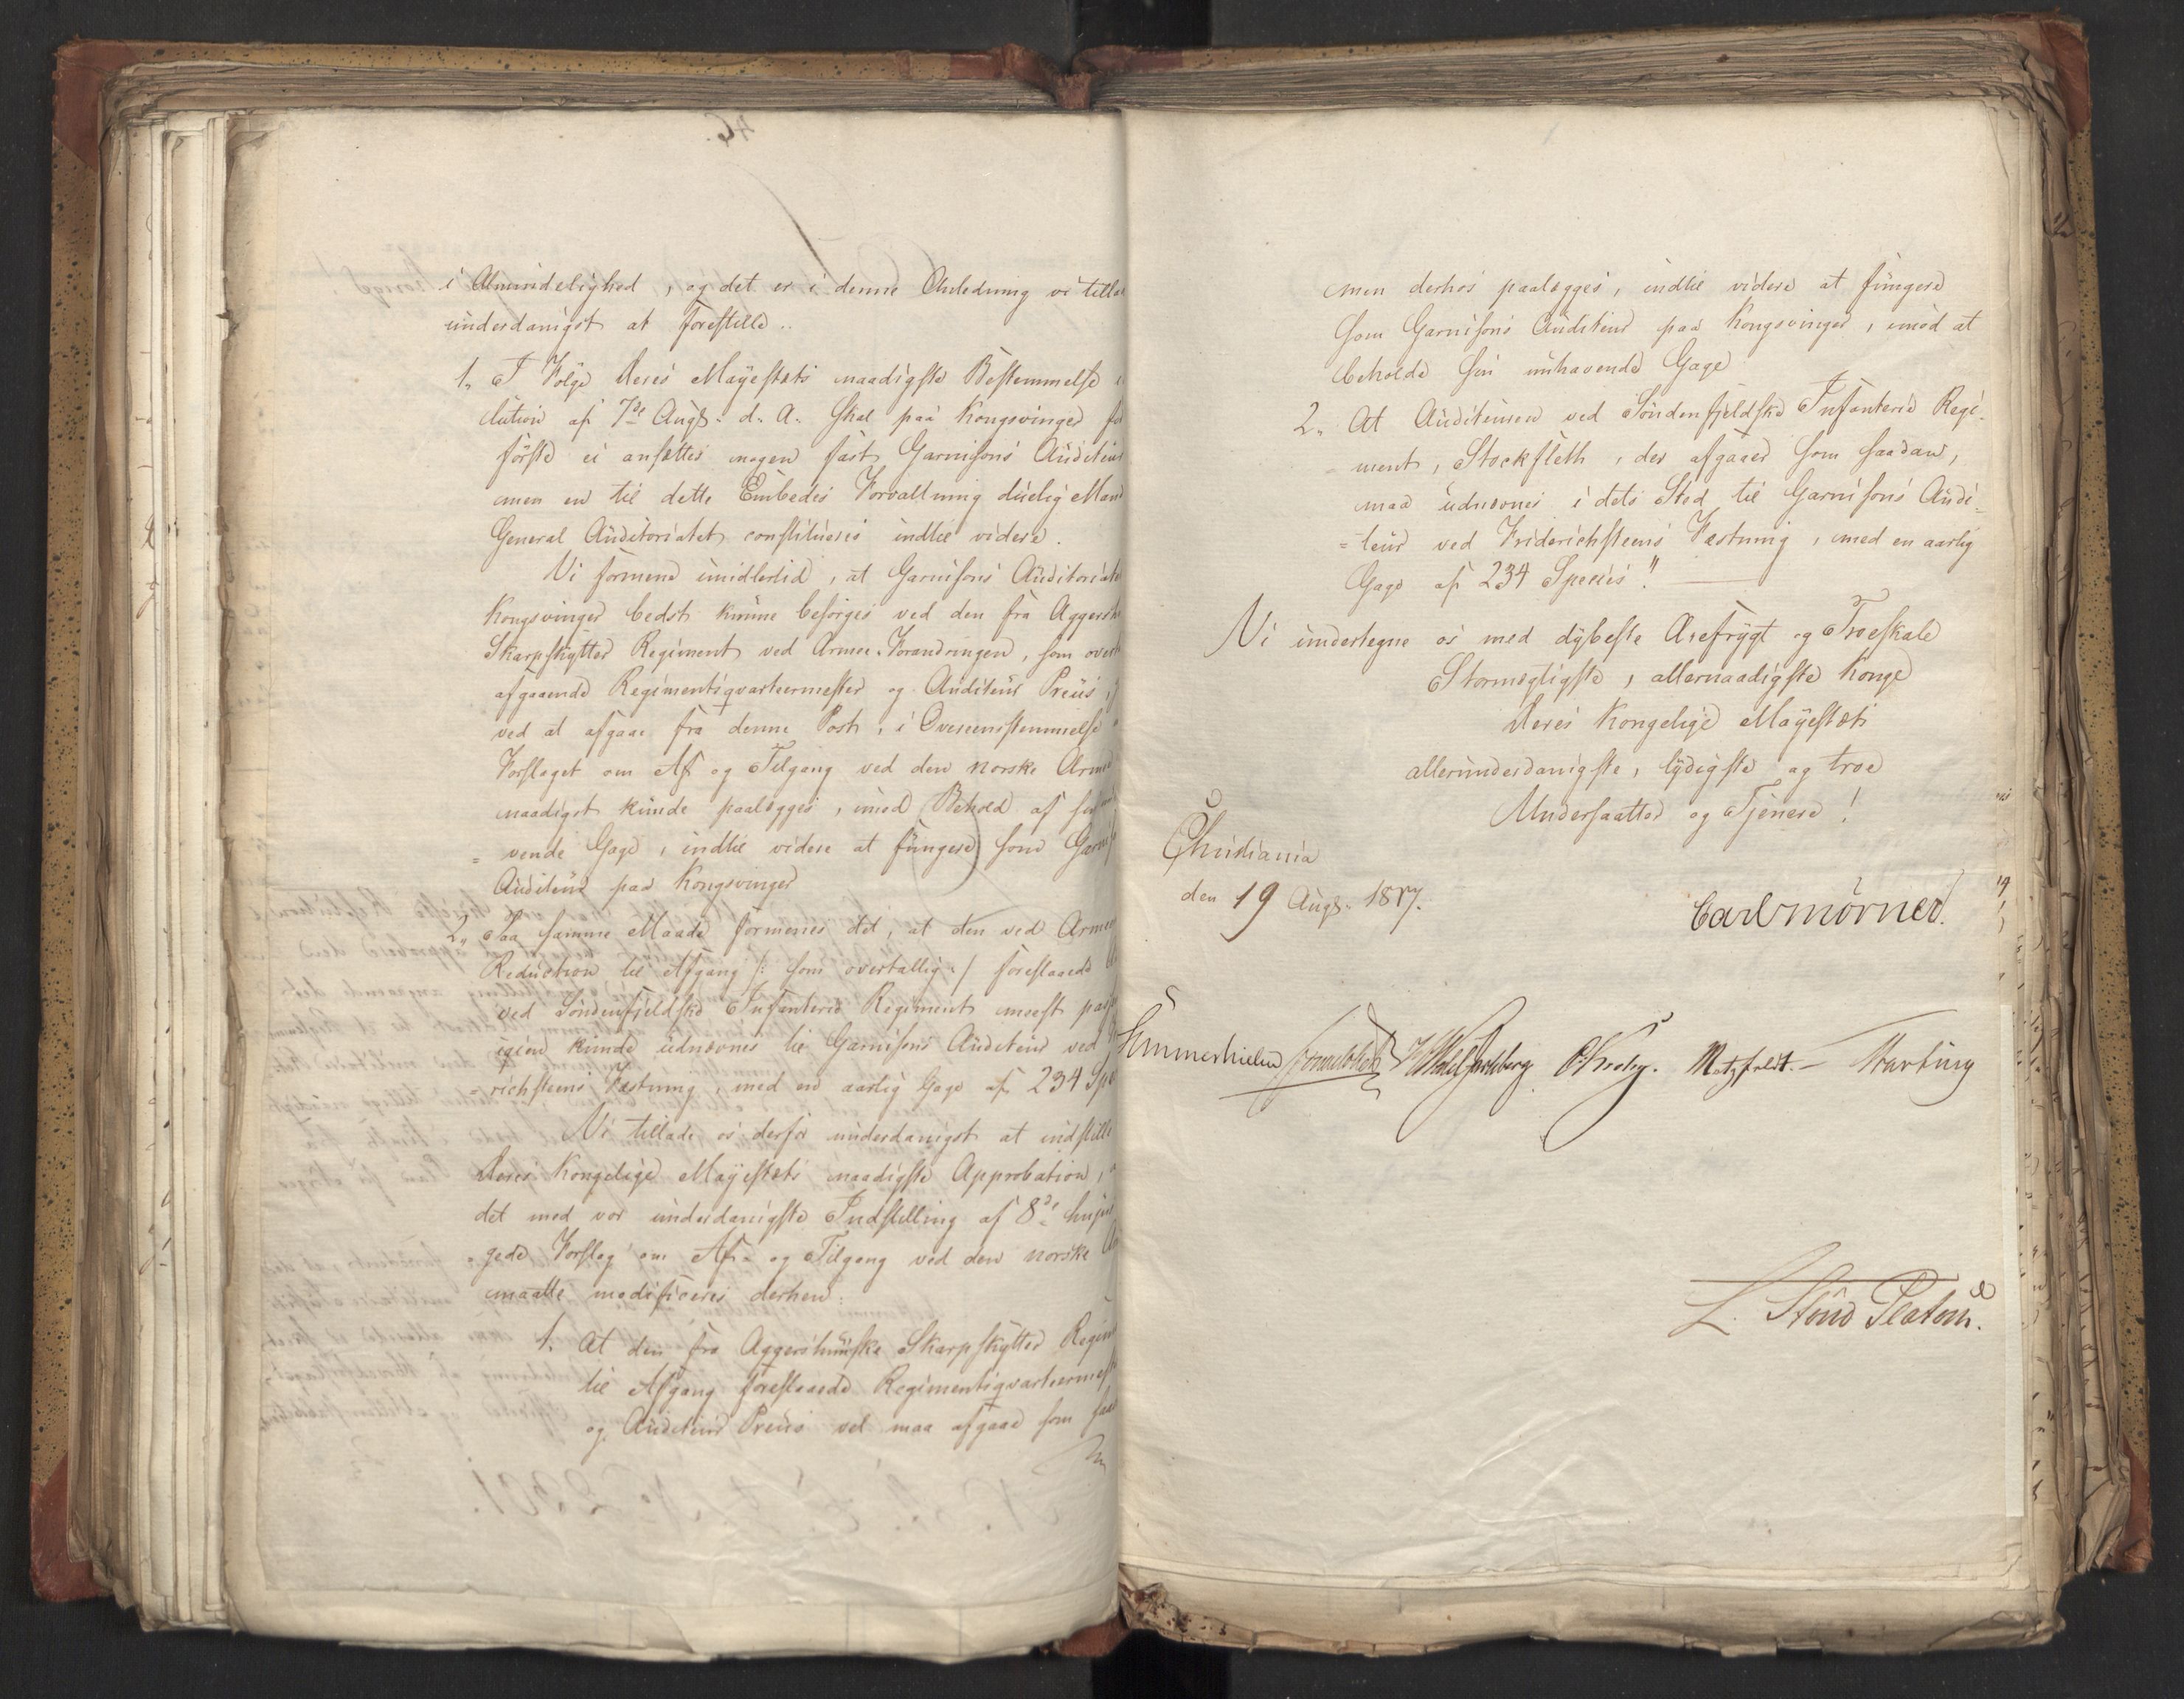 i Almindelighed, og det er i denne Anledning vi tilla
underdanigst at forestille..
1, I Følge Deres Mayestæts naadigste Bestemmelse
lution af 7de Augs. d. A. skal paa Kongsvinger for
første ei ansættes nogen fast Garnisons Auditeur
men en til dette Embedes Forvaltning duelig Mand
General Auditoriatet constitueres indtil videre.
Vi formene imidlertid, at Garnisons Auditoriate
Kongsvinger bedst kunne besørges ved den fra Aggersh
Skarpskytter Regiment ved Armee-Forandringen, som overt
afgaaende Regimentsqvarteermester og Auditeur Preus,
ved at afgaae fra denne Post, i Overeensstemmelse
Forslaget om Af og Tilgang ved den norske Arme
naadigst kunde paalægges, imod Behold af sin
= vende Gage, indtil videre at fungere som Garnis
Auditeur paa Kongsvinger
2, Paa samme Maade formenes det, at den ved Armee
Reduction til Afgang /: som overtallig :/ foreslaaede
ved Søndenfjeldske Infanterie Regiment meest pas
igien kunde udnævnes til Garnisons Auditeur ved
= richsteens Fæstning, med en aarlig Gage af 234 Spe
Vi tillade os derfor underdanigst at indstille
Deres Kongelige Mayestæts naadigste Approbation,
det med vor underdanigste Indstilling af 8de hujus
gede Forslag om Af- og Tilgang ved den norske
maatte modificeres derhen:
1. At den fra Aggershuusske Skarpskytter Regim
til Afgang foreslaaede Regimentsqvarteermest
og Auditeur Preus vel maa afgaae som saa
men derhos paalægges, indtil videre at fungere
som Garnisons Auditeur paa Kongsvinger, imod at
beholde sin innhavende Gage
2, At Auditeuren ved Søndenfjeldske Infanterie Regi-
= ment, Stockfleth, der afgaaer som saadan,
maa udnævnes i dets Sted til Garnisons Audi-
= teur ved Friderichsteens Fæstning, med en aarlig
Gage af 234 Species."
Vi undertegne os med dybeste Ærefrygt og Troeskab
Stormægtigste, allernaadigste Konge
Deres Kongelige Mayestæts
allerunderdanigste, lydigste og troe
Undersaatter og Tjenere!
Christiania
den 19 Augs. 1817.
Carl Mörner.
Sommerhielm HWedelJarlsberg CKrohg. Motzfeldt. Treschow
L. Stoud Platou.